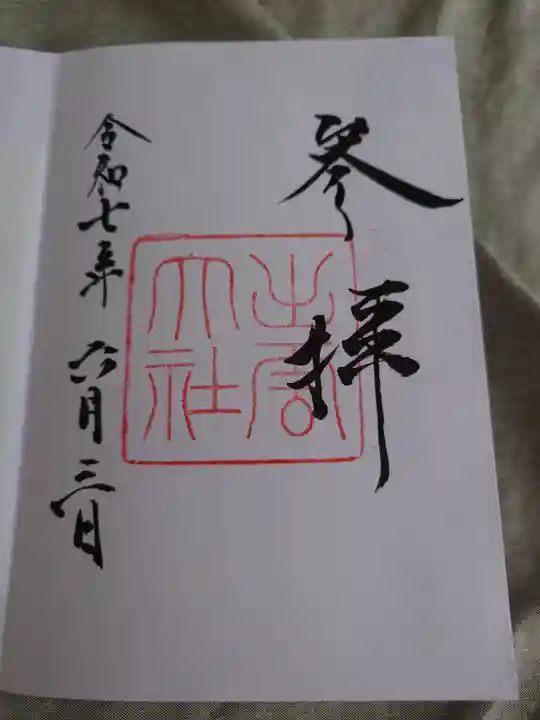 參拝
出雲大社
令和七年 六月三日